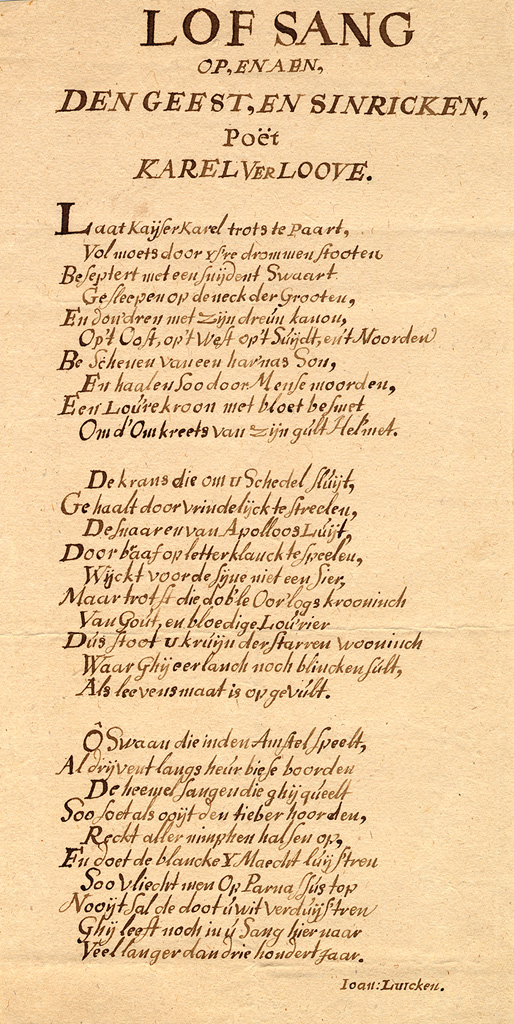 LOF SANG
OP, EN AEN,
DEN GEEST, EN SINRICKEN,
Poët
KAREL VER LOOVE.
Laat Kaijser Karel trots te Paart,
Vol moets door ysre drommen stooten
Beseptert met een snijdent Swaart
Ge sleepen op de neck der Grooten,
En dond'ren met zijn dreun kanon,
Op't Oost, op't West op't Suijdt, en't Noorden
Be Schenen van een har'nas Son,
En haalen soo door Mense moorden,
Een Lourekroon met bloet besmet
Om d'Omkreets van zijn gult Helmet.
De krans die om u Schedel sluijt,
Gehaalt door vrindelijck te streelen,
De snaaren van Apolloos Luijt,
Door b'aaf op letterklanck te speelen,
Wijckt voor de sijne niet een sier,
Maar trotst die dob'le Oorlogs krooninch
Van Gout, en bloedige Lourier
Dus stoot u kruijn der starren wooninch
Waar Ghij eer lanch noch blincken sult,
Als leevens maat is op gevult.
Ô Swaan die inden Amstel speelt,
Al drijvent langs heur biese boorden
De heemel sangen die ghij queelt
Soo soet als ooijt den tieber hoorden,
Reckt aller nimphen halsen op,
En doet de blancke Y Maecht luijstren
Soo Vliecht men Op Parnassus top
Nooijt sal de doot u wit verduijstren
Ghij leeft noch in u Sang hier naar
Veel langer dan drie hondert Jaar.
Ioan: Luicken.